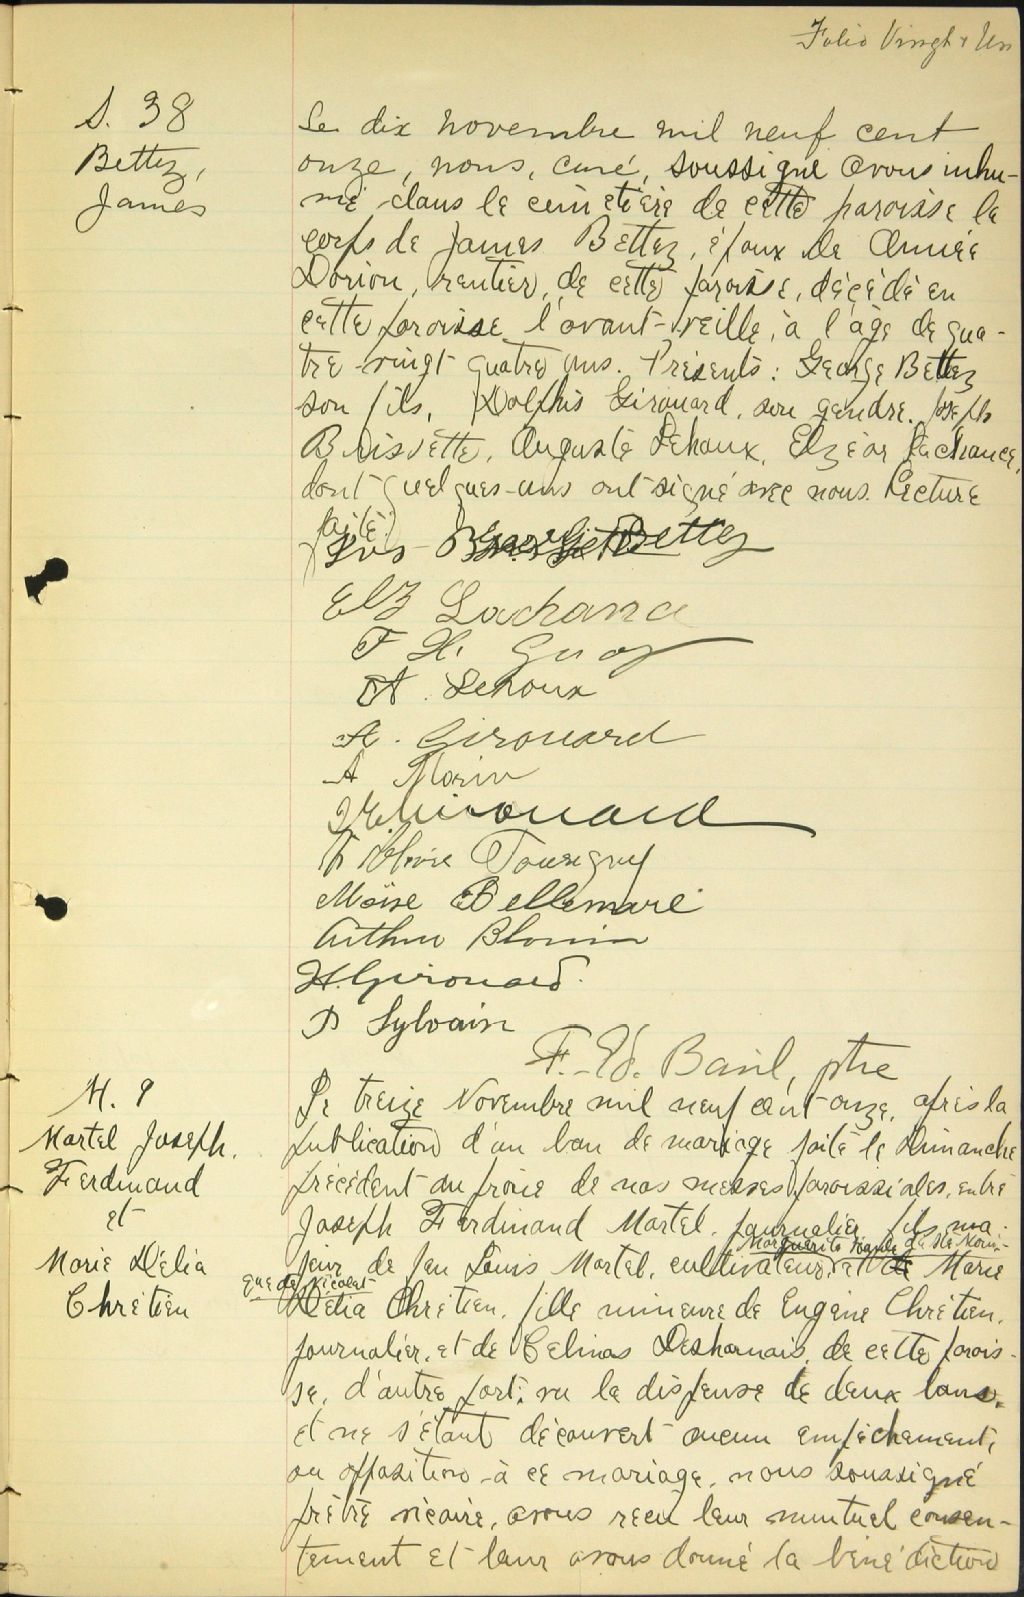 Folio Vingt & Un
S. 38
Bettez,
James
Le dix novembre mil neuf cent
onze, nous, curé, soussigné avons inhu-
mé dans le cimetière de cette paroisse le
corps de James Bettez, époux de
Dorion, rentier, de cette paroisse, décédé en
cette paroisse l'avant-veille, à l'âge de qua-
tre-vingt quatre ans. Présents: George Bettez
son fils, Dolphis Girouard, son gendre, Joseph
Brissette, Auguste Lehoux, Elzéar Lachance,
dont quelques-uns ont signé avec nous. Lecture
faite)
George Bettez
Elz Lachance
F. X. Guay
A. Lehoux
A. Girouard
A Morin
Girouard
Tourigny
Moïse Bellemare
Arthur Blouin
H. Girouard.
D Sylvain
F.-Ed. Baril, ptre
M. 9
Martel Joseph.
Ferdinand
et
Marie Délia
Chrétien
Le treize Novembre mil neuf cent onze, après la
publication d'un ban de mariage faite le Dimanche
précédent au prône de nos messes paroissiales, entre
Joseph Ferdinand Martel, journalier, fils ma-
Marguerite de
jeur de feu Louis Martel, cultivateur, et de Marie
que de Nicolet
Délia Chrétien, fille mineure de Eugène Chrétien,
journalier, et de Celinas Desharnais, de cette parois-
se, d'autre part; vu la dispense de deux bans,
et ne s'étant découvert aucun empêchement,
ou opposition à ce mariage, nous soussigné
prêtre vicaire, avons reçu leur mutuel consen-
tement et leur avons donné la bénédiction